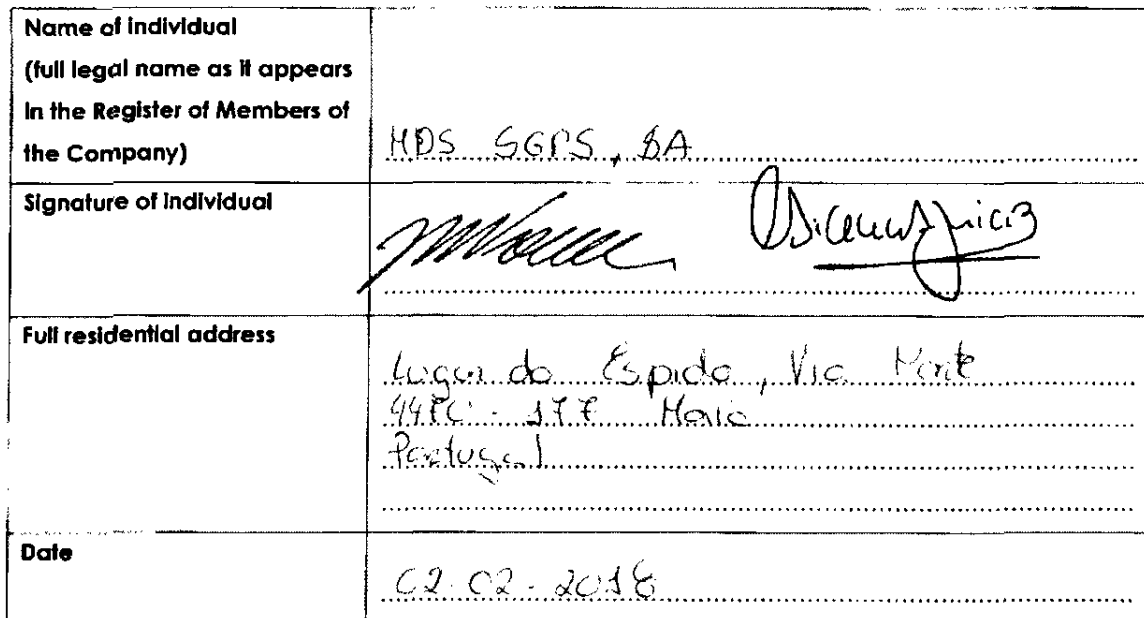 Name of individual
(full legal name as it appears
in the Register of Members of
the Company)
MDS SGPS, SA
Signature of individual
Full residential address
Lugar do Espido, Via Norte
Maia
Portugal
Date
02-02-2018